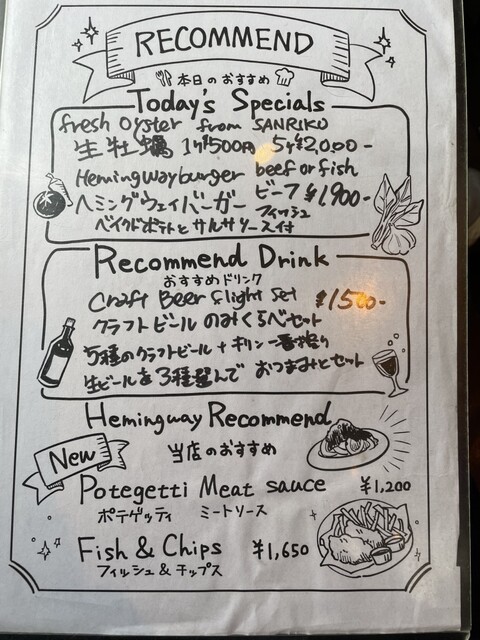 RECOMMEND
本日のおすすめ
Today's Specials
fresh Oyster from SANRIKU
生牡蠣 1ヶ¥500円 5ヶ¥2,000-
Hemingway burger beef or fish
ヘミングウェイバーガー ビーフ ¥1,900-
フィッシュ
ベイクドポテトとサルサソース付
Recommend Drink
おすすめドリンク
Craft Beer flight set ¥1500-
クラフトビールのみくらべセット
5種のクラフトビール+キリン一番搾り
生ビールを3種選んで おつまみとセット
Hemingway Recommend
New
当店のおすすめ
Potegetti Meat sauce ¥1,200
ポテゲッティ ミートソース
Fish & Chips ¥1,650
フィッシュ&チップス